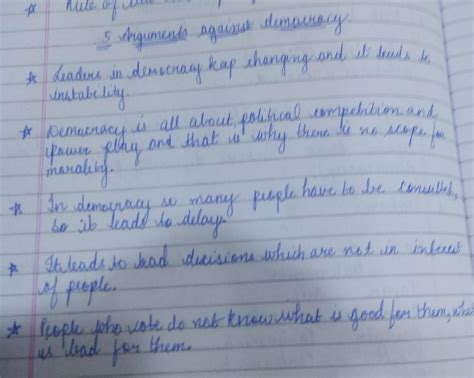 * Rule of law
5 Arguments against democracy
* Leaders in democracy kep changing and it leads to
instability.
* Democracy is all about political competition and
power play and that is why there is no scope for
morality.
* In democracy so many people have to be consulted,
so it leads to delays.
* It leads to bad decisions which are not in interest
of people.
* People who vote do not know what is good for them, what
is bad for them.